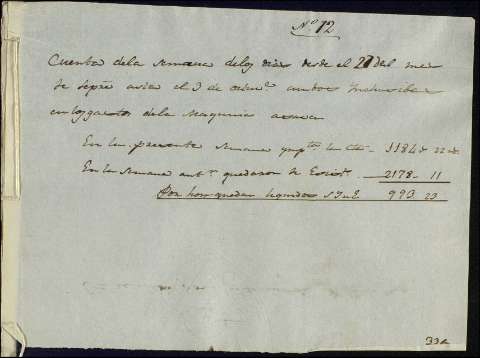 Nº 12
Cuenta dela semana delos dias desde el 27 del mes
de septe asta el 3 de ambos inclusibes
en los gastos dela Maquina
En la presente semana 1184 22
En la semana antr quedaron de 2178 11
Por hon quedan liquidos 993 23
33